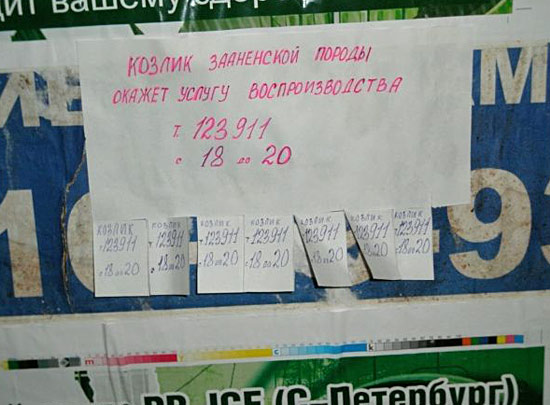 дит вашему здор
КОЗЛИК ЗААНЕНСКОЙ ПОРОДЫ
ОКАЖЕТ УСЛУГУ ВОСПРОИЗВОДСТВА
Т. 123911
с 18 до 20
КОЗЛИК
т. 123911
с 18 до 20
КОЗЛИК
т. 123911
с 18 до 20
КОЗЛИК
т. 123911
с 18 до 20
КОЗЛИК
т. 123911
с 18 до 20
КОЗЛИК
123911
18 до 20
КОЗЛИК
123911
18 20
КОЗЛИК
т. 123911
с 18 до 20
93
c
k
ICE (С-Петербург)